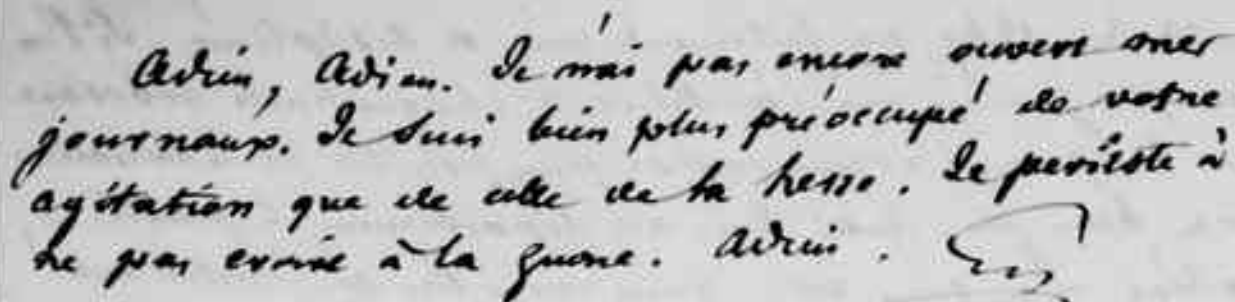 Adieu, Adieu. Je n'ai pas encore ouvert mes
journaux. Je suis bien plus préoccupé de votre
agitation que de celle de la Hesse. Je persiste à
ne pas croire à la guerre. Adieu.